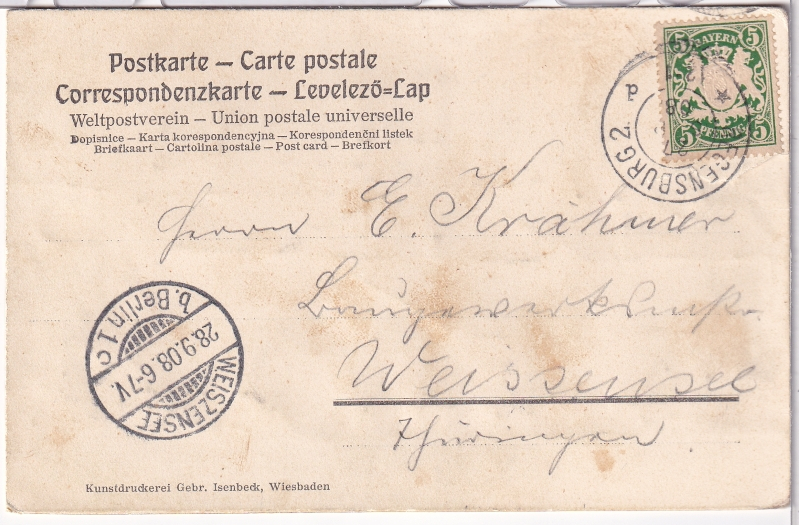 Postkarte — Carte postale
Correspondenzkarte — Levelező=Lap
Weltpostverein — Union postale universelle
Dopisnice — Karta korespondencyjna — Korespondenční listek
Briefkaart — Cartolina postale — Post card — Brefkort
5 BAYERN 5
5 PFENNIG 5
REGENSBURG 2.
Herrn E. Krähmer
Baugewerksmstr.
Weissensee
Thüringen
WEISZENSEE
28.9.08.6-7V.
b. Berlin. 1 c
Kunstdruckerei Gebr. Isenbeck, Wiesbaden